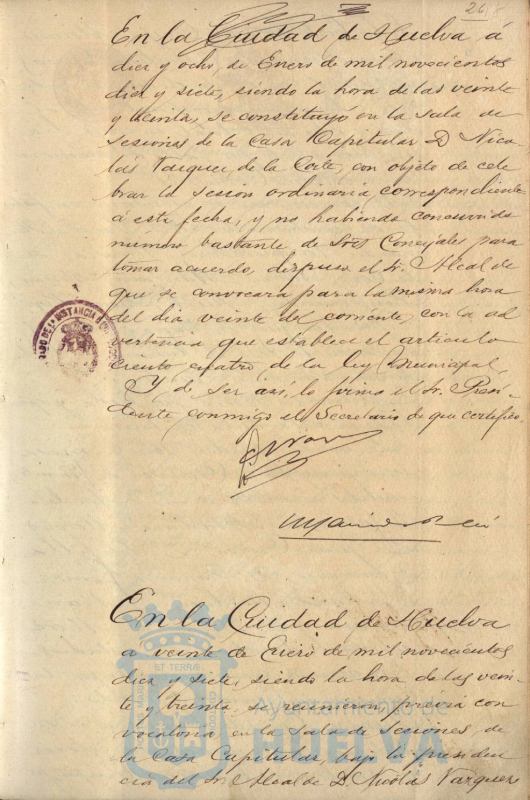 26
En la Ciudad de Huelva á
diez y ocho, de Enero de mil novecientos
diez y siete, siendo la hora de las veinte
y treinta, se constituyó en la sala de
sesiones de la Casa Capitular D. Nico-
lás Vazquez de la Corte, con objeto de cele
brar la sesión ordinaria correspondiente
á esta fecha, y no habiendo concurrido
número bastante de Sres Concejales para
tomar acuerdo, dispuso el Sr. Alcalde
que se convocara para la misma hora
del dia veinte del corriente, con la ad
vertencia que establece el articulo
ciento cuatro de la ley Municipal,
Y de ser así, lo firma el Sr. Presi-
dente conmigo el Secretario de que certifico.
En la Ciudad de Huelva
a veinte de Enero de mil novecientos
diez y siete, siendo la hora de las vein-
te y treinta, se reunieron previa con
vocatoria en la Sala de Sesiones, de
la Casa Capitular bajo la presiden
cia del Sr. Alcalde D. Nicolás Vazquez
Ayuntamiento de
HUELVA
ET TERRÆ